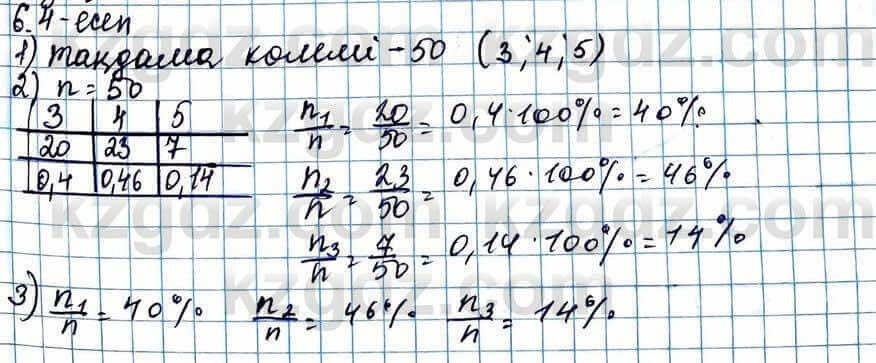 6.4-есеп
1) таңдама көлемі - 50 (3; 4; 5)
2) n = 50
3 4 5
20 23 7
0,4 0,46 0,14
n₁/n = 20/50 = 0,4 · 100% = 40%
n₂/n = 23/50 = 0,46 · 100% = 46%
n₃/n = 7/50 = 0,14 · 100% = 14%
3) n₁/n = 40% n₂/n = 46% n₃/n = 14%
kzgdz.com